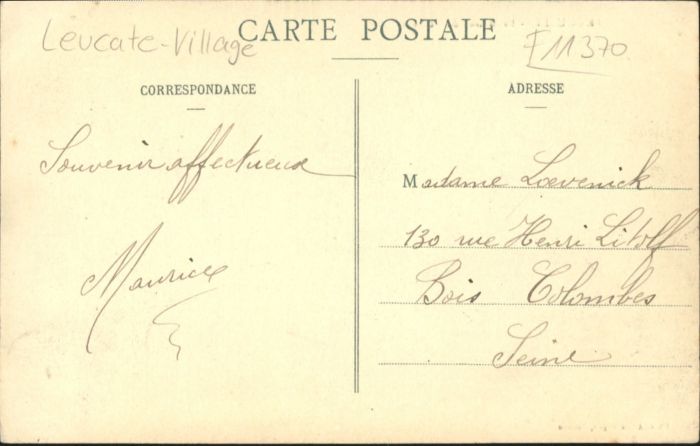 Leucate-Village
CARTE POSTALE
F11370
CORRESPONDANCE
ADRESSE
Souvenir affectueux
Maurice
Madame Loevenick
130 rue Henri Litolff
Bois Colombes
Seine